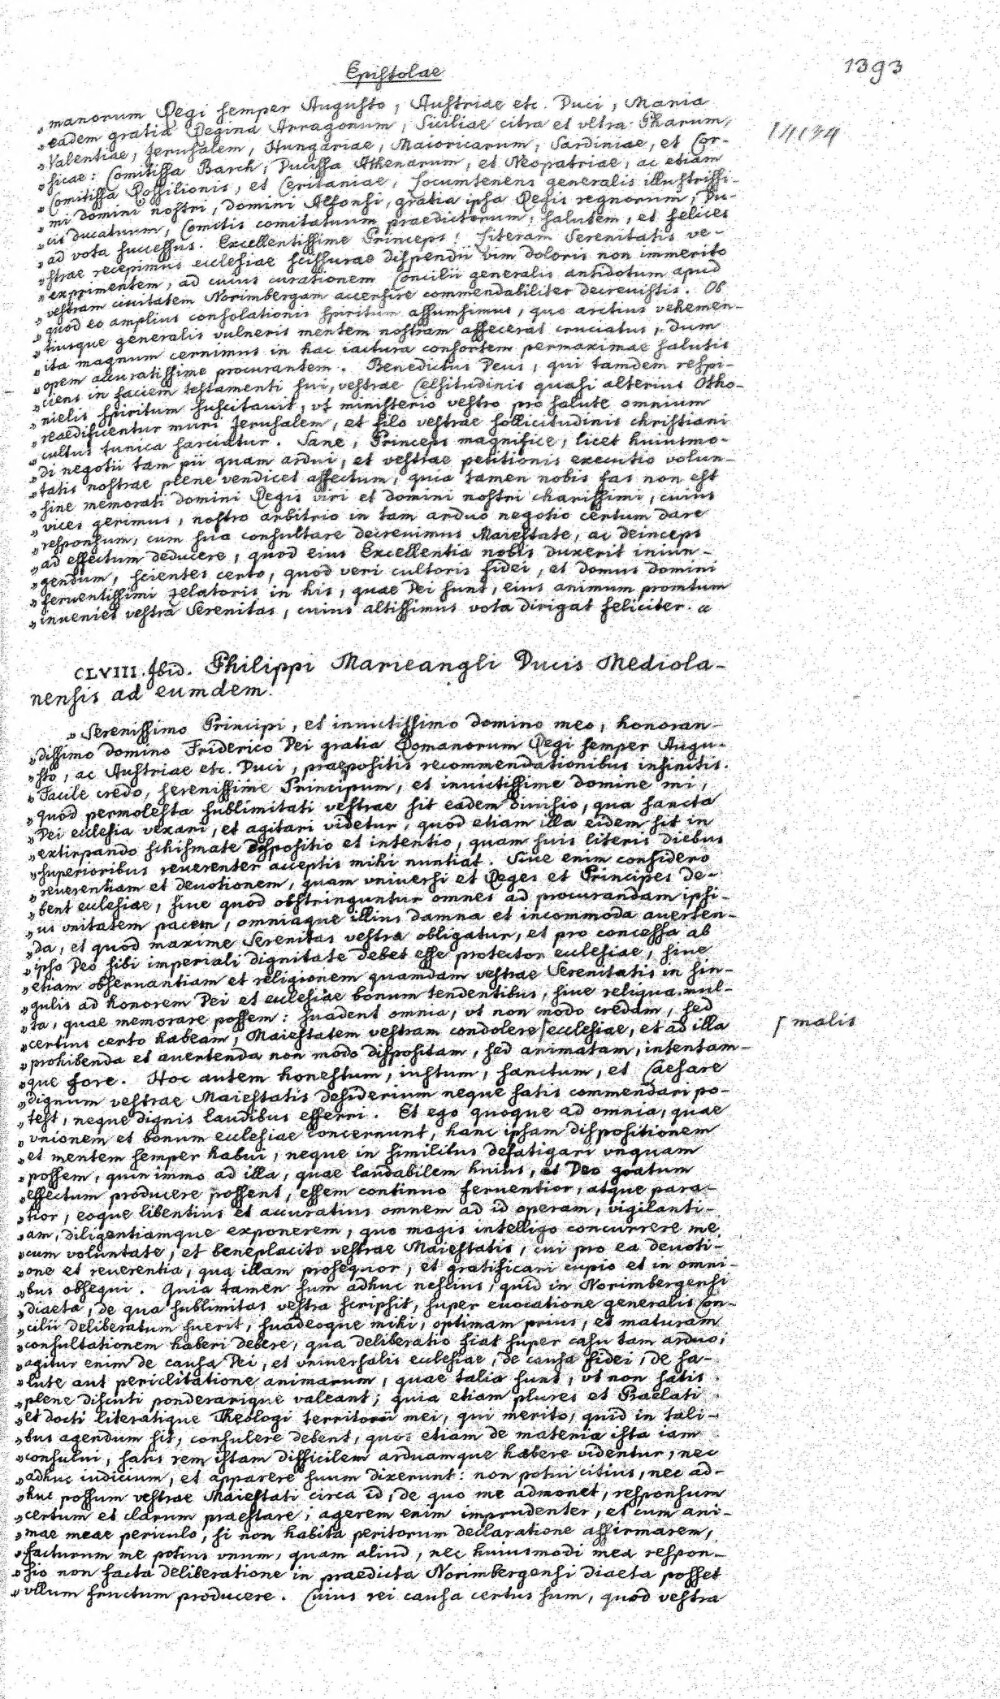 Epistolae
1393
„manorum Regi semper Augusto, Austriae etc. Duci, Maria
„eadem gratia Regina Arragonum, Siciliae citra et vltra Pharum,
14134
„Valentiae, Jerusalem, Hungariae, Maioricarum, Sardiniae, et Cor-
„sicae: Comitissa Barch, Ducissa Athenarum, et Neopatriae, ac etiam
„Comitissa Rossilionis, et Ceritaniae, Locumtenens generalis illustrissi-
„mi domini nostri, domini Alfonsi, gratia ipsa Regis regnorum, Du-
„cis ducatuum, Comitis comitatuum praedictorum, salutem, et felices
„ad vota successus. Excellentissime Princeps! Literam Serenitatis ve-
„strae recepimus ecclesiae scissurae dispendii vim doloris non immerito
„exprimentem, ad cuius curationem Concilii generalis antidotum apud
„vestram ciuitatem Norimbergam accersire commendabiliter decreuistis. Ob
„quod eo amplius consolationis spiritum assumsimus, quo arctius vehemen-
„tiusque generalis vulneris mentem nostram affecerat cruciatus, dum
„ita magnum cernimus in hac iactura consortem permaximae salutis
„opem accuratissime procurantem. Benedictus Deus, qui tamdem respi-
„ciens in faciem testamenti sui, vestrae Celsitudinis quasi alterius Otho-
„nielis spiritum suscitauit, vt ministerio vestro pro salute omnium
„reaedificentur muri Jerusalem, et filo vestrae sollicitudinis christiani
„cultus tunica sarciatur. Sane, Princeps magnifice, licet huiusmo-
„di negotii tam pii quam ardui, et vestrae petitionis executio volun-
„tatis nostrae plene vendicet affectum, quia tamen nobis fas non est
„sine memorati domini Regis viri et domini nostri charissimi, cuius
„vices gerimus, nostro arbitrio in tam arduo negotio certum dare
„responsum, cum sua consultare decreuimus Maiestate, ac deinceps
„ad effectum deducere, quod eius Excellentia nobis duxerit iniun-
„gendum, scientes certo, quod veri cultoris fidei, et domus Domini
„feruentissimi zelatoris in his, quae Dei sunt, eius animum promtum
„inueniet vestra Serenitas, cuius altissimus vota dirigat feliciter. a
CLVIII. Ibid. Philippi Marieangli Ducis Mediola-
nensis ad eumdem.
„Serenissimo Principi, et inuictissimo domino meo, honoran-
„dissimo domino Friderico Dei gratia Romanorum Regi semper Augu-
„sto, ac Austriae etc. Duci, praepositis recommendationibus infinitis.
„Facile credo, serenissime Principum, et inuictissime domine mi,
„quod permolesta sublimitati vestrae sit eadem diuisio, qua sancta
„Dei ecclesia vexari, et agitari videtur, quod etiam illa eidem sit in
„extirpando schismate dispositio et intentio, quam suis literis diebus
„superioribus reuerenter acceptis mihi nuntiat. Siue enim considero
„reuerentiam et deuotionem, quam vniuersi et Reges et Principes de-
„bent ecclesiae, siue quod obstringuntur omnes ad procurandam ipsi-
„us vnitatem pacem, omniaque illius damna et incommoda auerten-
„da, et quod maxime Serenitas vestra obligatur, et pro concessa ab
„ipso Deo sibi imperiali dignitate debet esse protector ecclesiae, siue
„etiam obseruantiam et religionem quamdam vestrae Serenitatis in sin-
„gulis ad honorem Dei et ecclesiae bonum tendentibus, siue reliqua mul-
„ta, quae memorare possem: suadent omnia, vt non modo credam, sed
„certius certo habeam, Maiestatem vestram condolere ⌈ecclesiae, et ad illa
⌈malis
„prohibenda et auertenda non modo dispositam, sed animatam, intentam-
„que fore. Hoc autem honestum, iustum, sanctum, et Caesare
„dignum vestrae Maiestatis desiderium neque satis commendari po-
„test, neque dignis laudibus efferri. Et ego quoque ad omnia, quae
„vnionem et bonum ecclesiae concernunt, hanc ipsam dispositionem
„et mentem semper habui, neque in similibus defatigari vnquam
„possem, quin immo ad illa, quae laudabilem huius, et Deo gratum
„effectum producere possent, essem continuo feruentior, atque para-
„tior, eoque libentius et accuratius omnem ad id operam, vigilanti-
„am, diligentiamque exponerem, quo magis intelligo concurrere me
„cum voluntate, et beneplacito vestrae Maiestatis, cui pro ea deuoti-
„one et reuerentia, qua illam prosequor, et gratificari cupio et in omni-
„bus obsequi. Quia tamen sum adhuc nescius, quid in Norimbergensi
„diaeta, de qua sublimitas vestra scripsit, super euocatione generalis Con-
„cilii deliberatum fuerit, suadeoque mihi, optimam prius, et maturam
„consultationem haberi debere, qua deliberatio fiat super casu tam arduo;
„agitur enim de causa Dei, et vniuersalis ecclesiae, de causa fidei, de sa-
„lute aut periclitatione animarum, quae talia sunt, vt non satis
„plene discuti ponderarique valeant; quia etiam plures et Praelati
„et docti literatique Theologi territorii mei, qui merito, quid in tali-
„bus agendum sit, consulere debent, quos etiam de materia ista iam
„consului, satis rem istam difficilem arduamque habere videntur, nec
„adhuc iudicium, et apparere suum dixerunt: non potui citius, nec ad-
„huc possum vestrae Maiestati circa id, de quo me admonet, responsum
„certum et clarum praestare, agerem enim imprudenter, et cum ani-
„mae meae periculo, si non habita peritorum declaratione affirmarem,
„facturum me potius vnum, quam aliud, nec huiusmodi mea respon-
„sio non facta deliberatione in praedicta Norimbergensi diaeta posset
„vllum fructum producere. Cuius rei causa certus sum, quod vestra